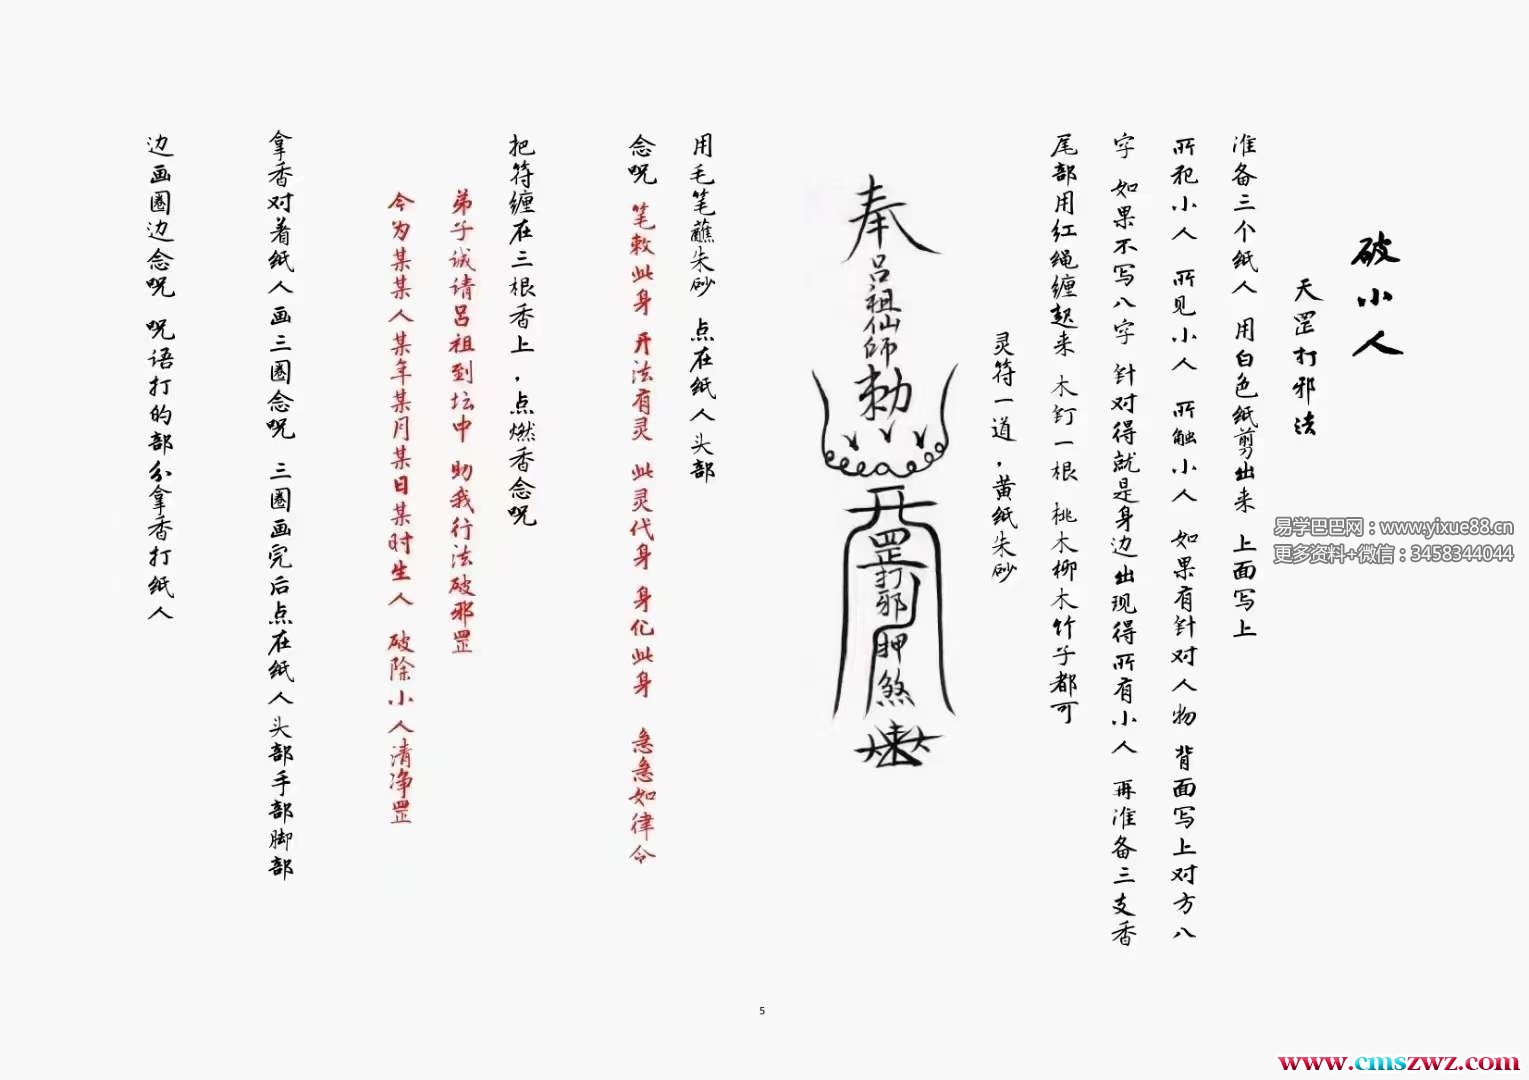 破小人
天罡打邪法
准备三个纸人 用白色纸剪出来 上面写上
所犯小人 所见小人 所触小人 如果有针对人物 背面写上对方八
字 如果不写八字 针对得就是身边出现得所有小人 再准备三支香
尾部用红绳缠起来 木钉一根 桃木柳木竹子都可
灵符一道，黄纸朱砂
奉
吕祖仙師
勅
罡打邪押煞
用毛笔蘸朱砂 点在纸人头部
念呪 笔敕此身 开法有灵 此灵代身 身化此身 急急如律令
把符缠在三根香上，点燃香念呪
弟子诚请吕祖到坛中 助我行法破邪罡
今为某某人某年某月某日某时生人 破除小人清净罡
拿香对着纸人画三圈念呪 三圈画完后点在纸人头部手部脚部
边画圈边念呪 呪语打的部分拿香打纸人
易学巴巴网：www.yixue88.cn
更多资料+微信：3458344044
5
www.cmszwz.com